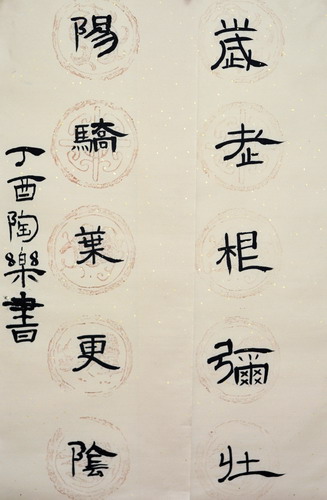 歲老根彌壯
陽驕葉更陰
丁酉陶樂書